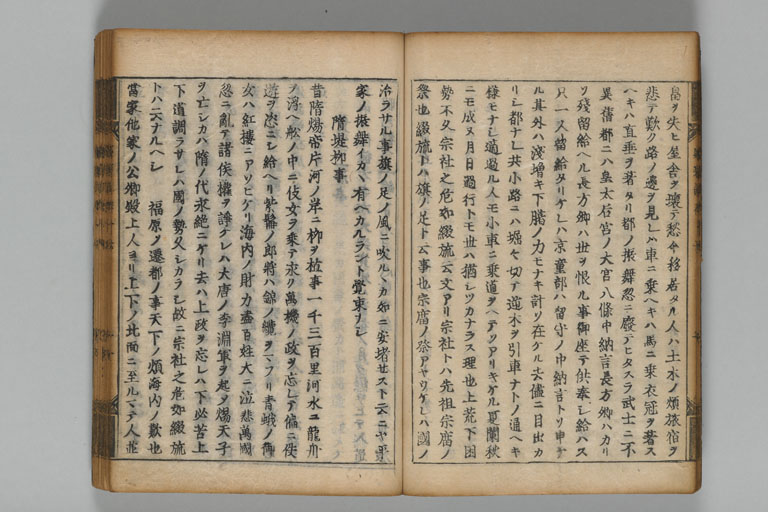 畠ヲ失ヒ屋舎ヲ壊テ愁今移若タル人ハ土木ノ煩旅宿ヲ
悲テ歎ク路ノ邊ヲ見レハ車ニ乗ヘキハ馬ニ乗衣冠ヲ著ス
ヘキハ直垂ヲ著タリ都ノ振舞忽ニ廢テヒタスラ武士ニ不
異舊都ニハ皇太后宮ノ大宮八條中納言長方卿ハカリ
ソ残留給ヘル長方卿ハ世ヲ恨ル事御座テ供奉シ給ハス
只一人留給タリケレハ京童部ハ留守ノ中納言トソ申ケ
ル其外ハ浅増キ下﨟ノ力モナキ計ソ在ケル大儘ニ目出カ
リシ都ナレ共小路ニハ堀ヲ切テ逆木ヲ引車ナトノ通ヘキ
様モナシ適過ル人モ小車ニ乗道ヲヘテソアリキケル夏闌秋
ニモ成ヌ月日過行トモ世ハ猶シツカナラス理也上荒下困
勢不久宗社之危如綴旒云文アリ宗社トハ先祖宗廟ノ
祭也綴旒トハ旗ノ足ト云事也宗廟ノ祭アヤウケレハ國ノ
治ラサル事旗ノ足ノ風ニ吹ルヽカ如ニ安堵セスト云ニヤ平
家ノ振舞イカヽ有ヘカルラント覺束ナシ
隋堤柳事
昔隋煬帝片河ノ岸ニ柳ヲ植事一千三百里河水ニ龍舟
ヲ浮ヘ舩ノ中ニ伎女ヲ乗テ永ク萬機ノ政ヲ忘レテ偏ニ伎
遊ヲ恣ニシ給ヘリ紫髯ノ郎将ハ錦ノ纜ヲマフリ青蛾ノ御
女ハ紅樓ニアソヒケリ海内ノ財力盡百姓大ニ泣悲萬國
忽ニ亂テ諸侯權ヲ諍ケレハ大唐ノ李淵軍ヲ起ヲ煬天子
ヲ亡シカハ隋ノ代永絶ニケリ去ハ上政ヲ忘レハ下必苦上
下道調ラサレハ國ノ勢久シカラシ故ニ宗社之危如綴旒
トハ云ナルヘシ 福原ノ遷都ノ事天下ノ煩海内ノ歎也
當家他家ノ公卿殿上人ヨリ上下ノ北面ニ至ルマテ人並